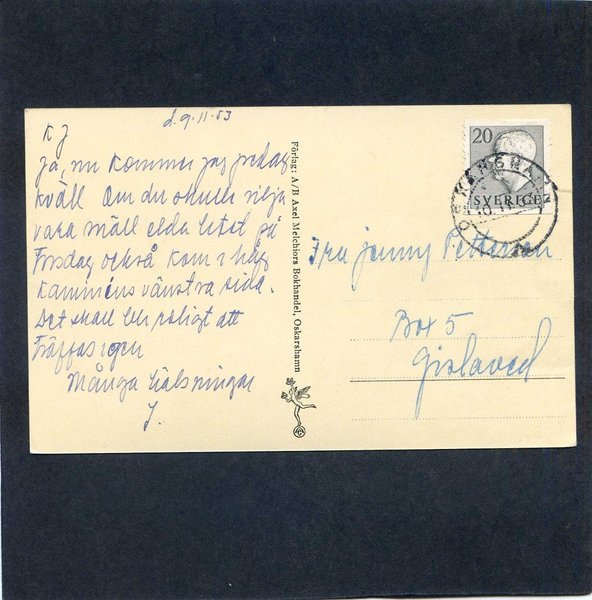 d. 9.11.53
K J
Ja, nu kommer jag fredag
kväll Om du skulle vilja
vara snäll elda litet på
Fredag också kom i håg
kaminens vänstra sida.
Det skall bli roligt att
träffas igen
Många hälsningar
J.
Förlag: A/B Axel Melchiors Bokhandel, Oskarshamn
20
SVERIGE
OSKARSHAMN
Fru Jenny Petterson
Box 5
Gislaved